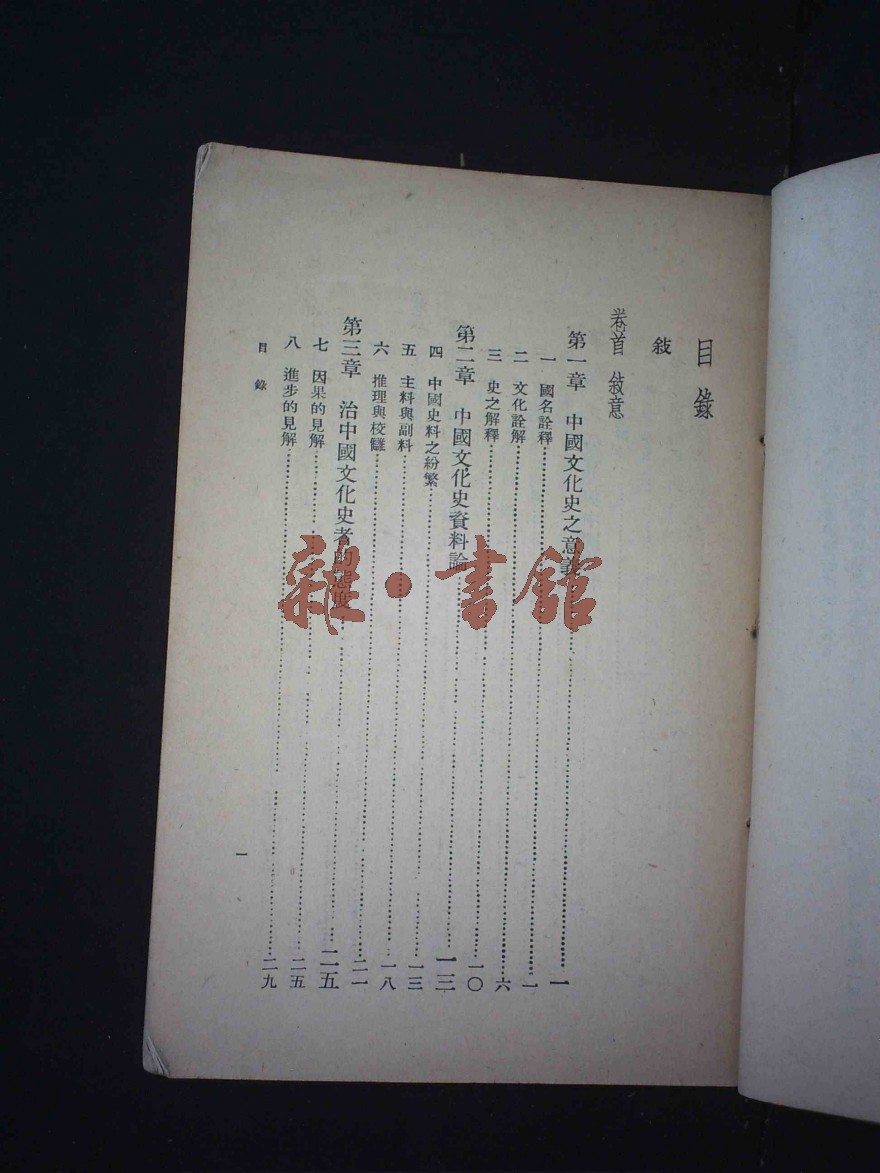 目錄
敍
卷首 敍意
第一章 中國文化史之意義……一
一 國名詮釋……一
二 文化詮解……六
三 史之解釋……一〇
第二章 中國文化史資料論……一三
四 中國史料之紛繁……一三
五 主料與副料……一八
六 推理與校讎……二一
第三章 治中國文化史者的態度……二五
七 因果的見解……二五
八 進步的見解……二九
目錄 一
雜·書館